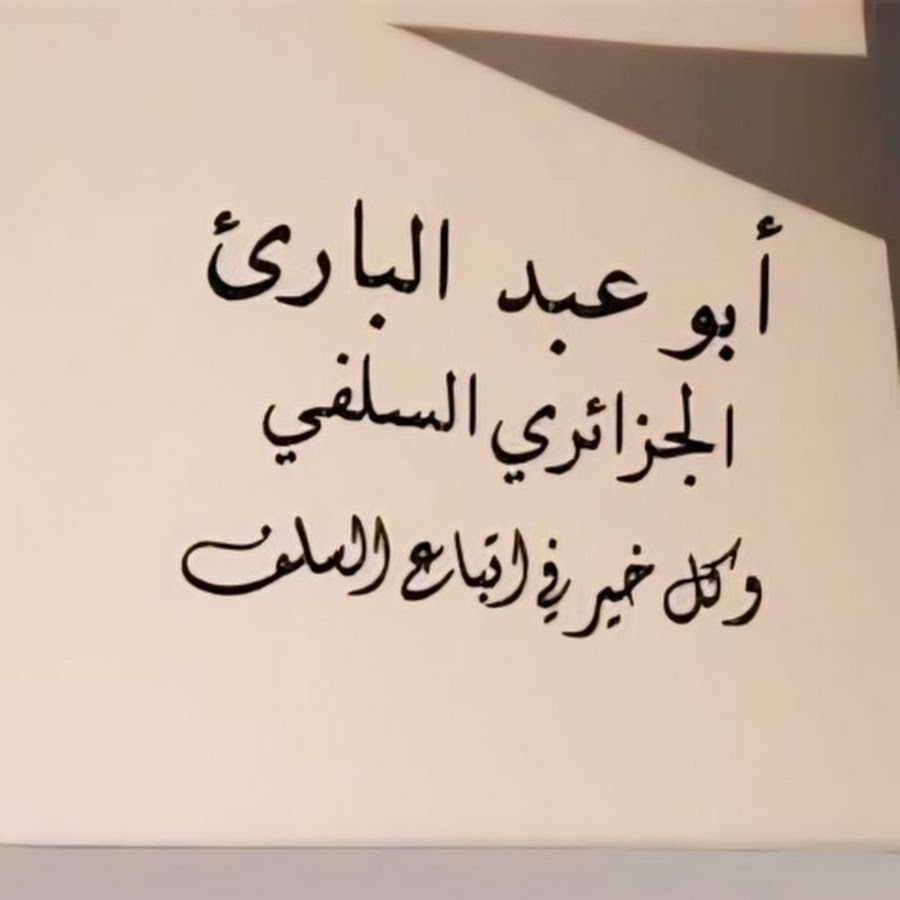 أبو عبد البارئ
الجزائري السلفي
وكل خير في اتباع السلف